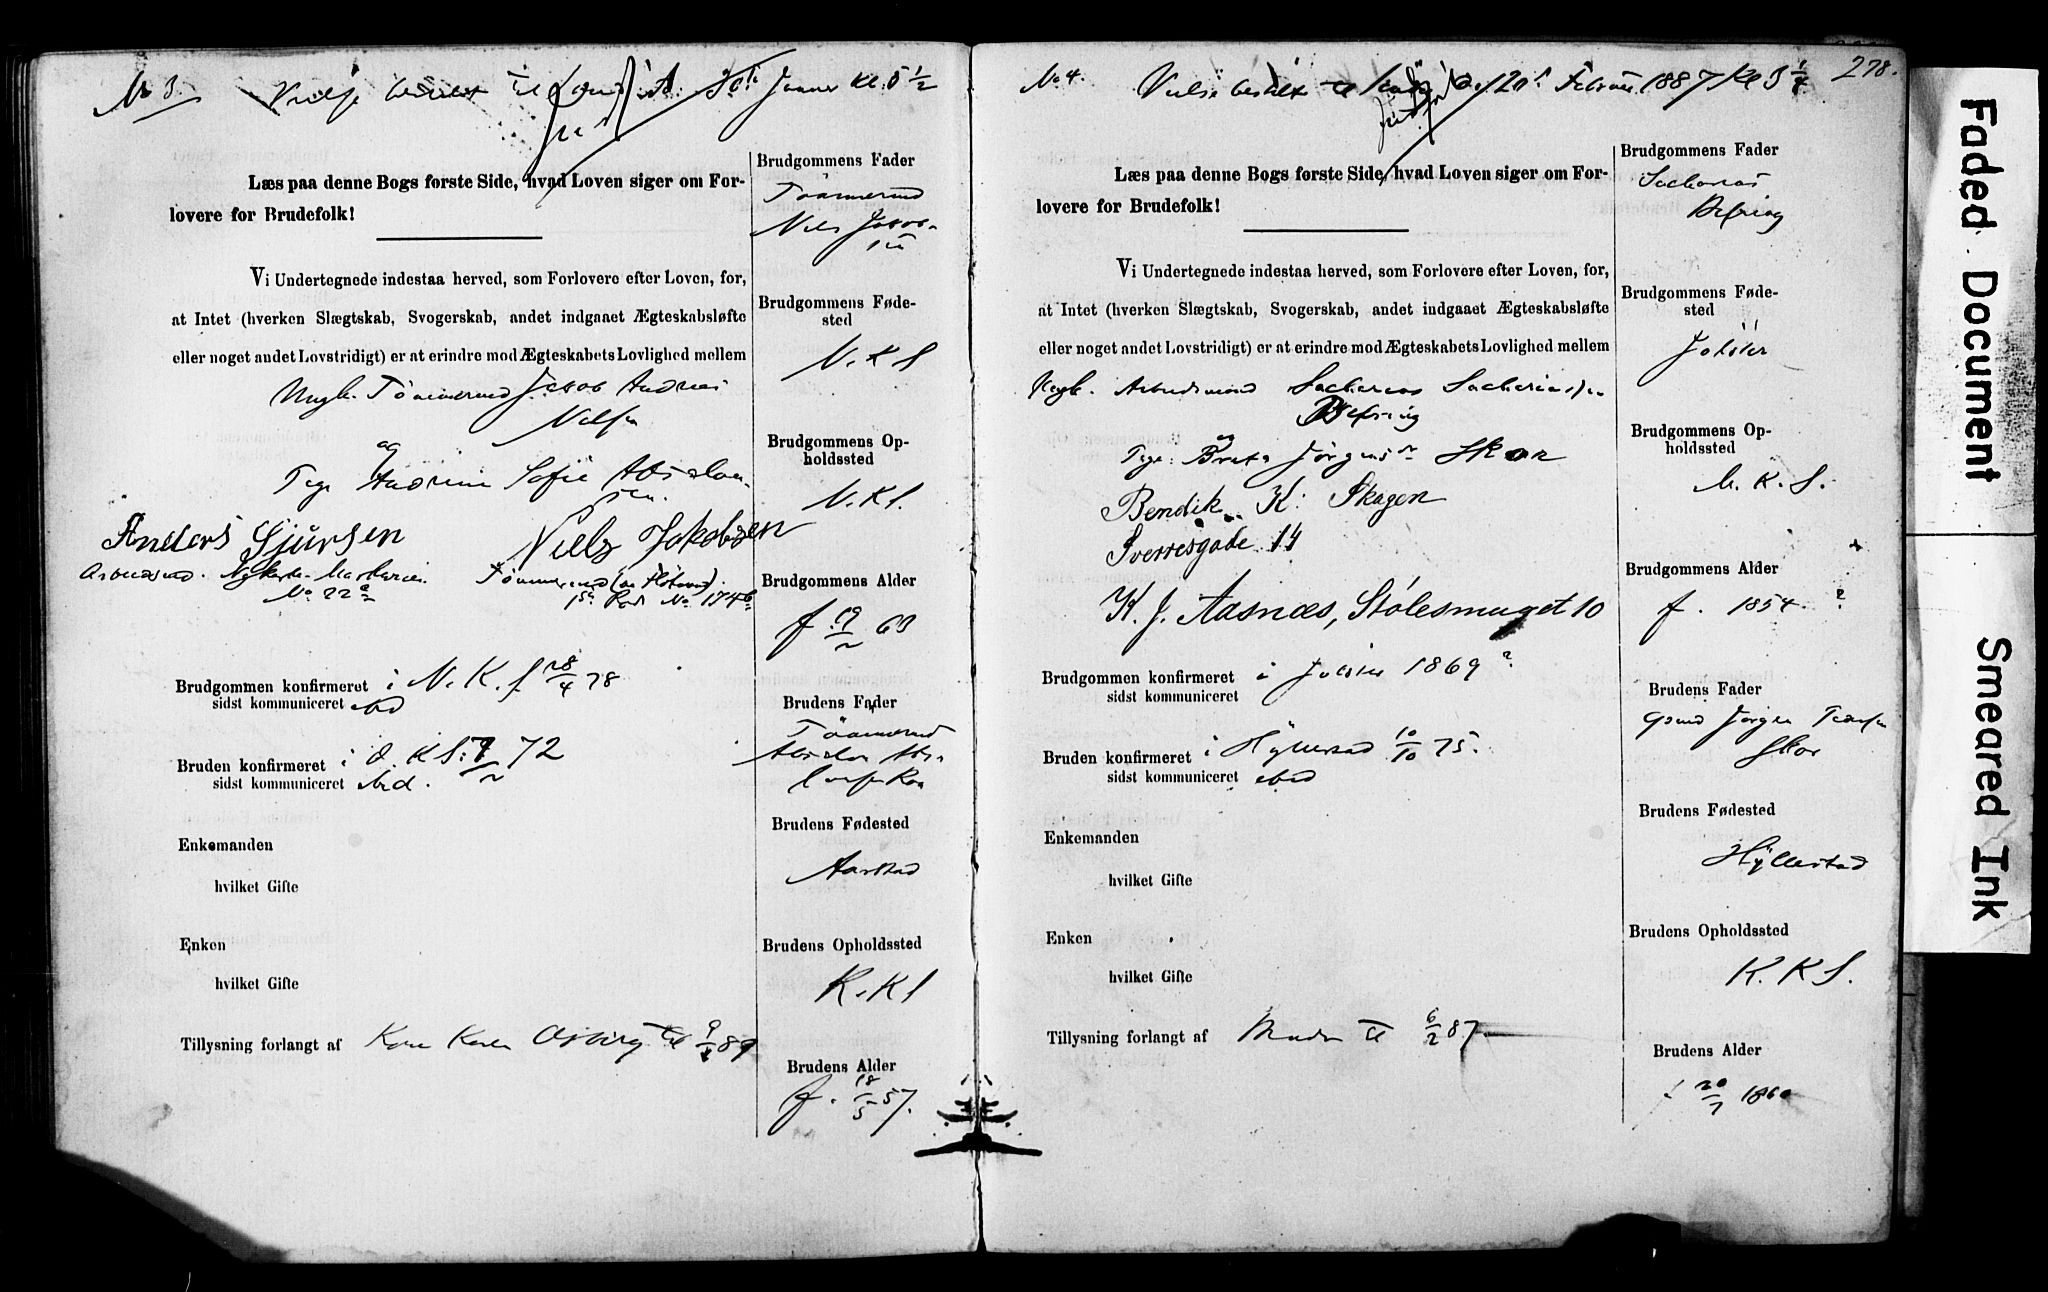 No 3.
Vielse bestilt til 30te Januar Kl. 5 1/2
Læs paa denne Bogs første Side, hvad Loven siger om For-
lovere for Brudefolk!
Vi Undertegnede indestaa herved, som Forlovere efter Loven, for,
at Intet (hverken Slægtskab, Svogerskab, andet indgaaet Ægteskabsløfte
eller noget andet Lovstridigt) er at erindre mod Ægteskabets Lovlighed mellem
Ungk. Tömmermd Jakob Andreas
Nilsen
og
Pige Andrine Sofie Absalon-
sen.
Anders Sjursen
Arbeidsmd.
No 22a
Niels Jakobsen
Tömmermd
No 174b
Brudgommen konfirmeret i N. K. S. 28/4 78
sidst kommuniceret ibd
Bruden konfirmeret i D. K. S. 72
sidst kommuniceret ibid.
Enkemanden
hvilket Gifte
Enken
hvilket Gifte
Tillysning forlangt af Kone Karen
Brudgommens Fader
Tömmermd
Niels Jakob-
sen
Brudgommens Føde-
sted
N. K. S
Brudgommens Op-
holdssted
N. K S.
Brudgommens Alder
f. 63
Brudens Fader
Tömmermd
Brudens Fødested
Aarstad
Brudens Opholdssted
K. K S
Brudens Alder
f. 18/5 57.
278.
No 4.
Vielse bestilt til 20de Februar 1887 Kl 5 1/4
Læs paa denne Bogs første Side, hvad Loven siger om For-
lovere for Brudefolk!
Vi Undertegnede indestaa herved, som Forlovere efter Loven, for,
at Intet (hverken Slægtskab, Svogerskab, andet indgaaet Ægteskabsløfte
eller noget andet Lovstridigt) er at erindre mod Ægteskabets Lovlighed mellem
Ungk. Arbeidsmand Sacharias Sachariassen
Befring
og
Pige Brita Jørgensdr Skor
Bendik K. Skagen
Sverresgade 14
K. J. Aasnæs, Stölesmuget 10
Brudgommen konfirmeret i Jölster 1869?
sidst kommuniceret
Bruden konfirmeret i Hyllestad 10/10 75.
sidst kommuniceret ibid
Enkemanden
hvilket Gifte
Enken
hvilket Gifte
Tillysning forlangt af Bruden til 6/2 87.
Brudgommens Fader
Sacharias
Befring
Brudgommens Føde-
sted
Jölster
Brudgommens Op-
holdssted
N. K. S.
Brudgommens Alder
f. 1854. ?
Brudens Fader
Gbmd Jørgen
Skor
Brudens Fødested
Hyllestad
Brudens Opholdssted
K. K S.
Brudens Alder
f. 20/7 1860
Faded Document
Smeared Ink